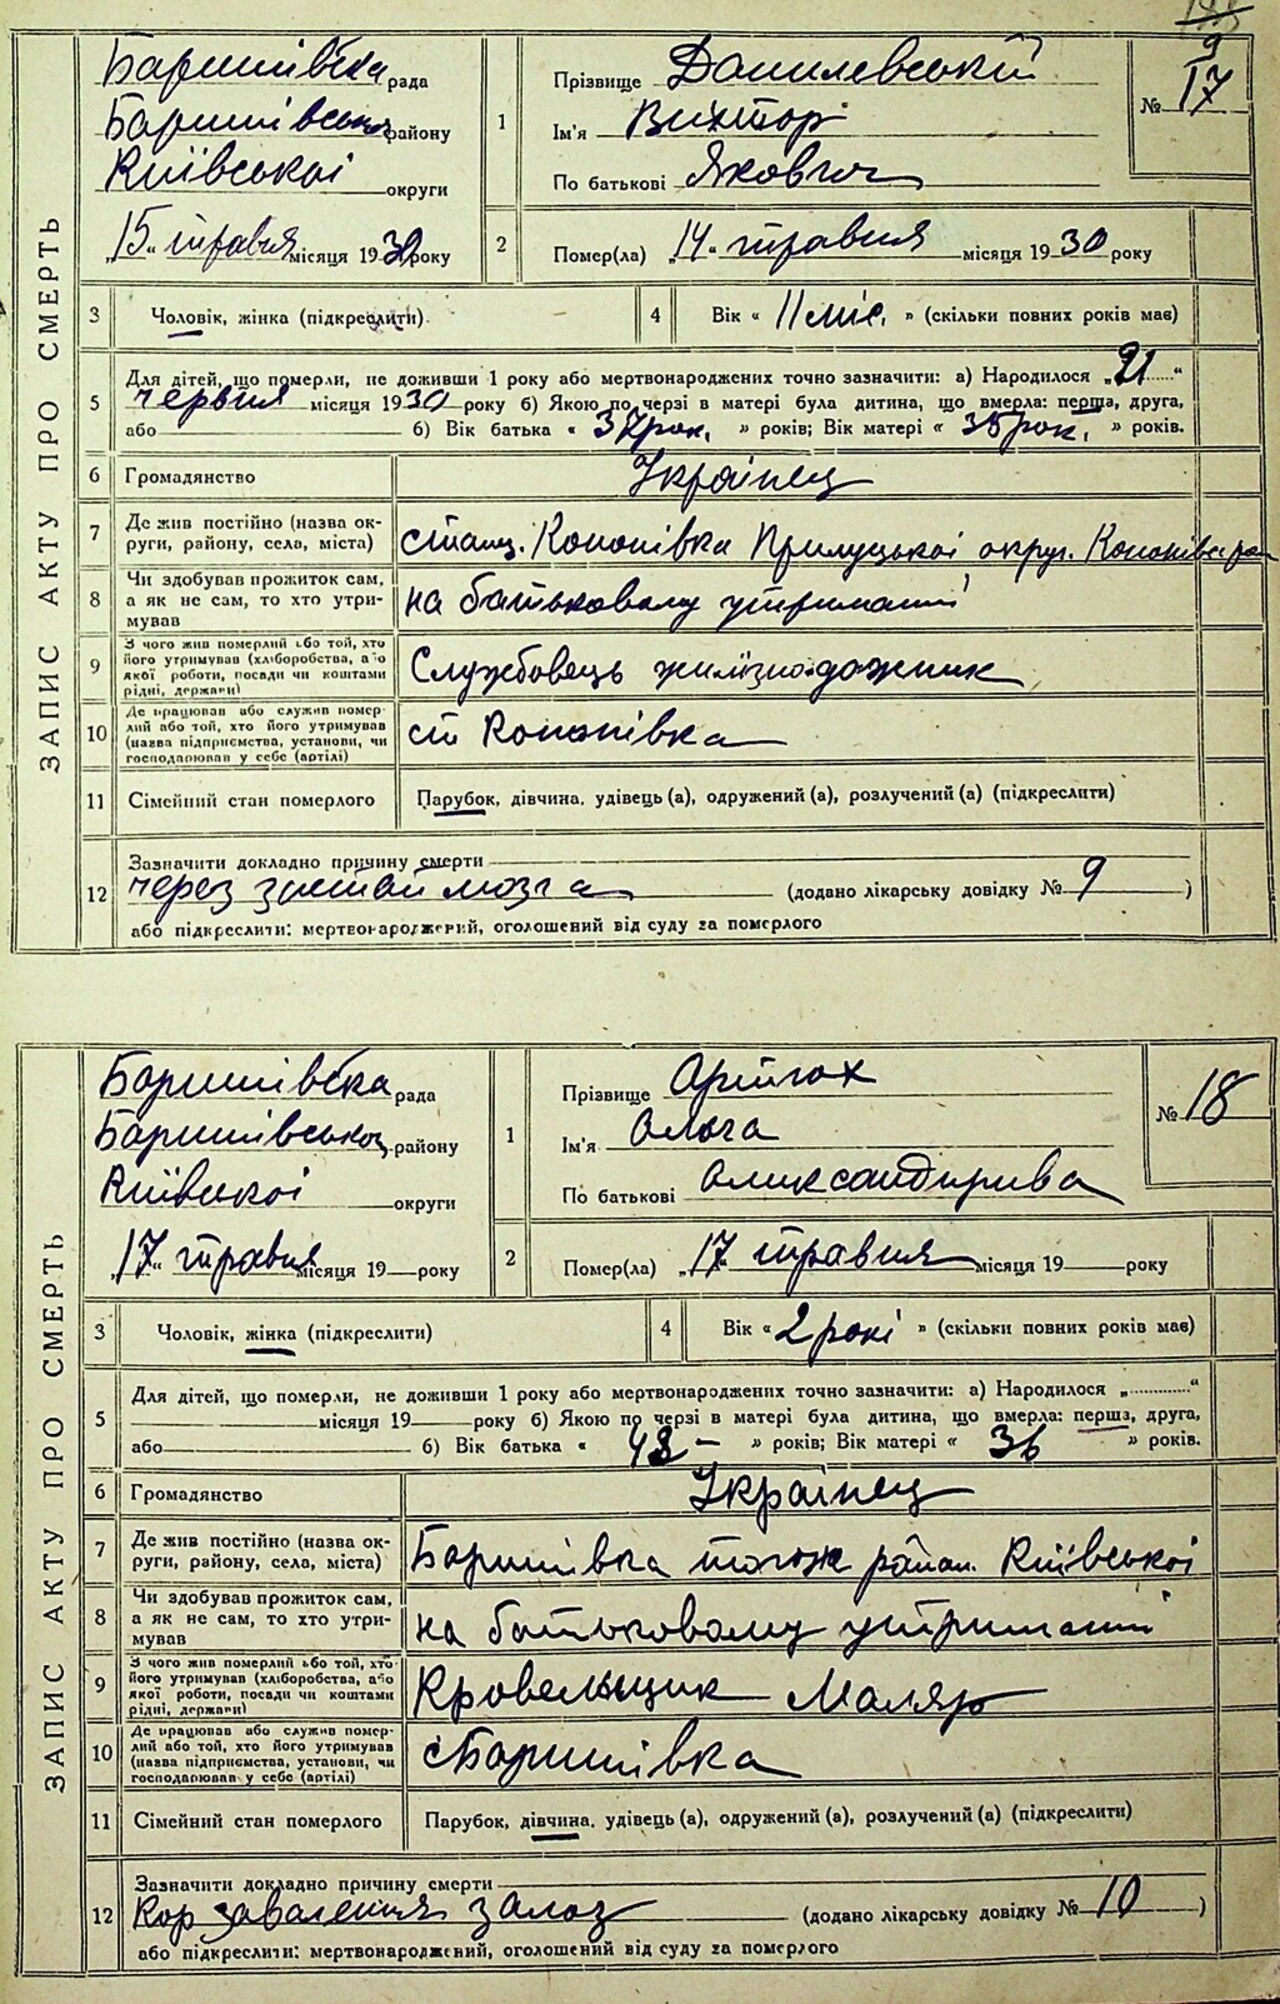 ЗАПИС АКТУ ПРО СМЕРТЬ
Баришівська рада
Баришівського району
Київської округи
„15“ травня місяця 1930 року
1
Прізвище Данилевський
Ім'я Виктор
По батькові Якович
9
№ 17
2
Помер(ла) „14“ травня місяця 1930 року
3
Чоловік, жінка (підкреслити)
4
Вік « 11 міс. » (скільки повних років має)
5
Для дітей, що померли, не доживши 1 року або мертвонароджених точно зазначити: а) Народилося „21“
червня місяця 1930 року б) Якою по черзі в матері була дитина, що вмерла: перша, друга,
або б) Вік батька « 37 рок. » років; Вік матері « 35 рок. » років.
6
Громадянство
Українец
7
Де жив постійно (назва ок-
руги, району, села, міста)
станц. Кононівка Прилуцької округ. Кононівс рай
8
Чи здобував прожиток сам,
а як не сам, то хто утри-
мував
на батьковому утриманні
9
З чого жив померлий або той, хто
його утримував (хліборобства, або
якої роботи, посади чи коштами
рідні, держави)
Службовець
10
Де працював або служив помер-
лий або той, хто його утримував
(назва підприємства, установи, чи
господарював у себе (артілі)
ст Кононівка
11
Сімейний стан померлого
Парубок, дівчина, удівець (а), одружений (а), розлучений (а) (підкреслити)
12
Зазначити докладно причину смерти
через мозга (додано лікарську довідку № 9 )
або підкреслити: мертвонароджений, оголошений від суду за померлого
ЗАПИС АКТУ ПРО СМЕРТЬ
Баришівська рада
Баришівського району
Київскої округи
„17“ травня місяця 19 року
1
Прізвище Артюх
Ім'я Ольга
По батькові
№ 18
2
Помер(ла) „17“ травня місяця 19 року
3
Чоловік, жінка (підкреслити)
4
Вік « 2 рокі » (скільки повних років має)
5
Для дітей, що померли, не доживши 1 року або мертвонароджених точно зазначити: а) Народилося „ “
місяця 19 року б) Якою по черзі в матері була дитина, що вмерла: перша, друга,
або б) Вік батька « 48 – » років; Вік матері « 36 » років.
6
Громадянство
Українец
7
Де жив постійно (назва ок-
руги, району, села, міста)
Баришівка тогож район. Київської
8
Чи здобував прожиток сам,
а як не сам, то хто утри-
мував
на батьковому утриманні
9
З чого жив померлий або той, хто
його утримував (хліборобства, або
якої роботи, посади чи коштами
рідні, держави)
Кровельщик Маляр
10
Де працював або служив помер-
лий або той, хто його утримував
(назва підприємства, установи, чи
господарював у себе (артілі)
с Баришівка
11
Сімейний стан померлого
Парубок, дівчина, удівець (а), одружений (а), розлучений (а) (підкреслити)
12
Зазначити докладно причину смерти
Кор завалення залоз (додано лікарську довідку № 10 )
або підкреслити: мертвонароджений, оголошений від суду за померлого